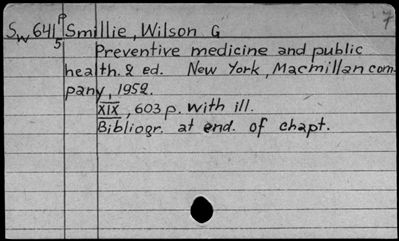 Sw 641 P Smillie, Wilson G
5 Preventive medicine and public
health. 2 ed. New York, Macmillan com-
pany, 1952.
XIX, 603 p. with ill.
Bibliogr. at end. of chapt.